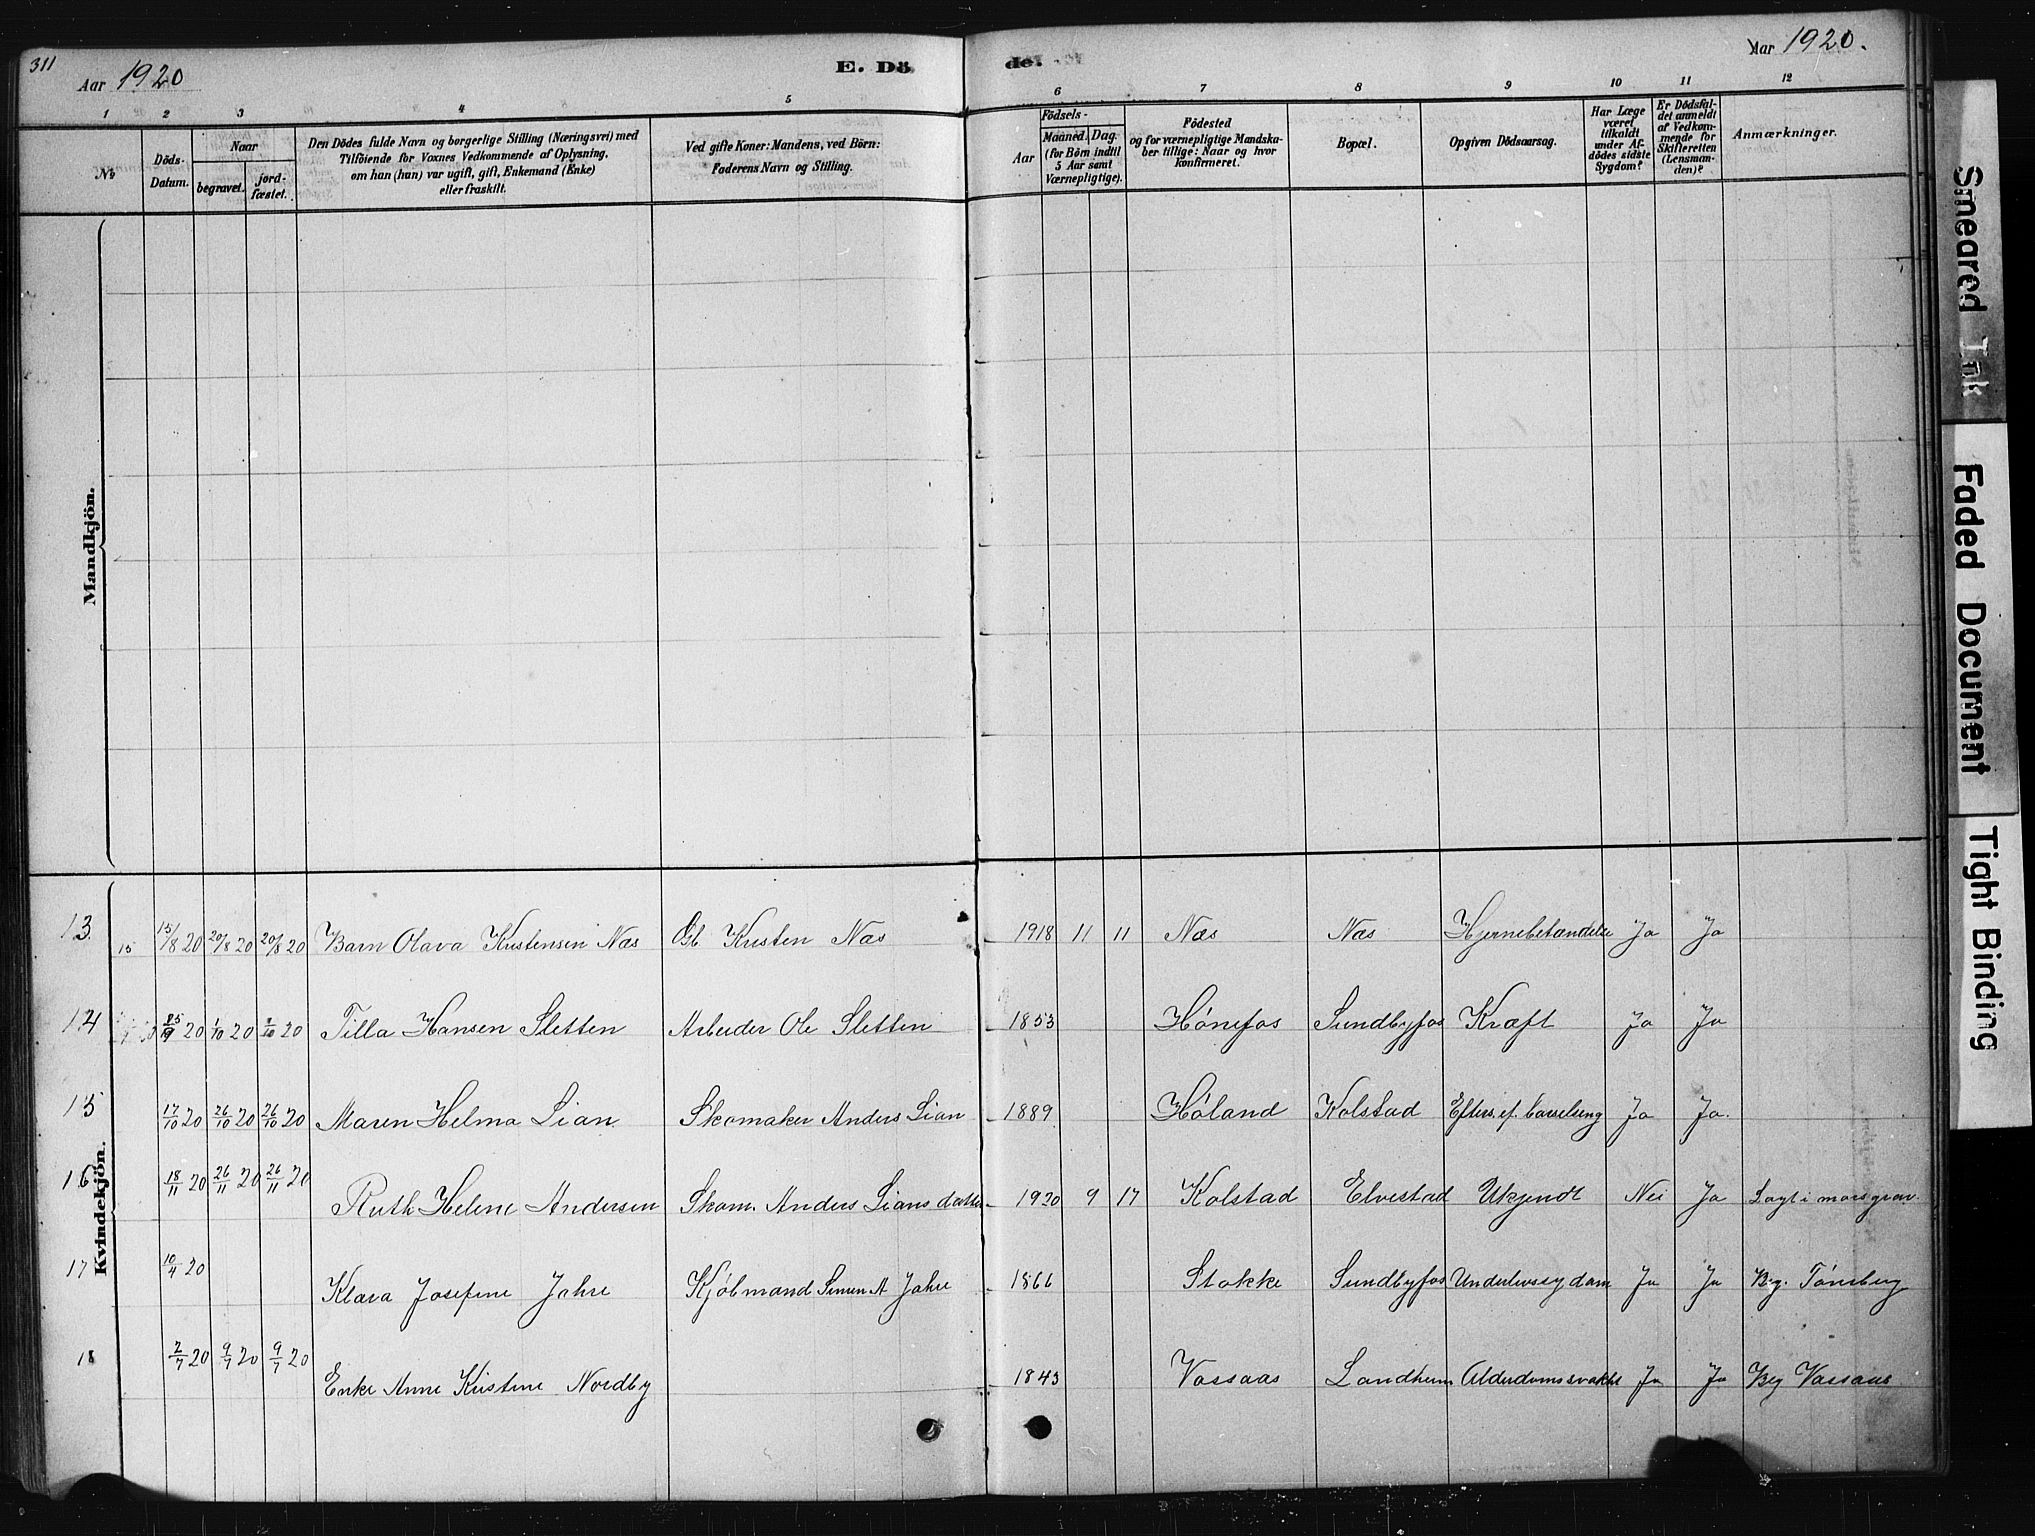 311
Aar 1920
E. Dö
de.
Aar 1920.
1 2 3 4 5 6 7 8 9 10 11 12
No
Döds-
Datum.
Naar
begravet.
jord-
fæstet.
Den Dödes fulde Navn og borgerlige Stilling (Næringsvei) med
Tilföiende for Voxnes Vedkommende af Oplysning,
om han (hun) var ugift, gift, Enkemand (Enke)
eller fraskilt.
Ved gifte Koner: Mandens, ved Börn:
Faderens Navn og Stilling.
Födsels-
Aar
Maaned. Dag.
(for Börn indtil
5 Aar samt
Værnepligtige).
Födested
og for værnepligtige Mandska-
ber tillige: Naar og hvor
konfirmeret.
Bopæl.
Opgiven Dödsaarsag.
Har Læge
været
tilkaldt
under Af-
dödes sidste
Sygdom?
Er Dödsfal-
det anmeldt
af Vedkom-
mende for
Skifteretten
(Lensman-
den)?
Anmærkninger.
Mandkjön.
Kvindekjön.
13. 15 15/8 20 20/8 20 20/8 20 Barn Olava Kristensen Næs Gb Kristen Næs 1918 11 11 Næs Næs Hjernebetændelse Ja Ja
14 25/9 20 1/10 20 20 Tilla Hansen Sletten Arbeider Ole Sletten 1853 Hønefos Sundbyfos Kræft Ja Ja
15 17/10 20 26/10 20 26/10 20 Maren Helma Lian Skomaker Anders Lian 1889 Høland Kolstad Efters. ef. barselseng Ja Ja.
16 18/11 20 26/11 20 26/11 20 Ruth Helene Andersen Skom. Anders Lians datter 1920 9 17 Kolstad Elvestad Ukjendt Nei Ja Lagt i mors grav.
17 10/4 20 Klara Josefine Jahre Kjøbmand Simen A Jahre 1866 Stokke Sundbyfos Underlivssygdom Ja Ja Beg. Tønsberg
18 2/7 20 9/7 20 9/7 20 Enke Anne Kristine Nordby 1843 Vassaas Landheim Alderdomssvakhet Ja Ja Beg Vassaas
Smeared Ink
Faded Document
Tight Binding